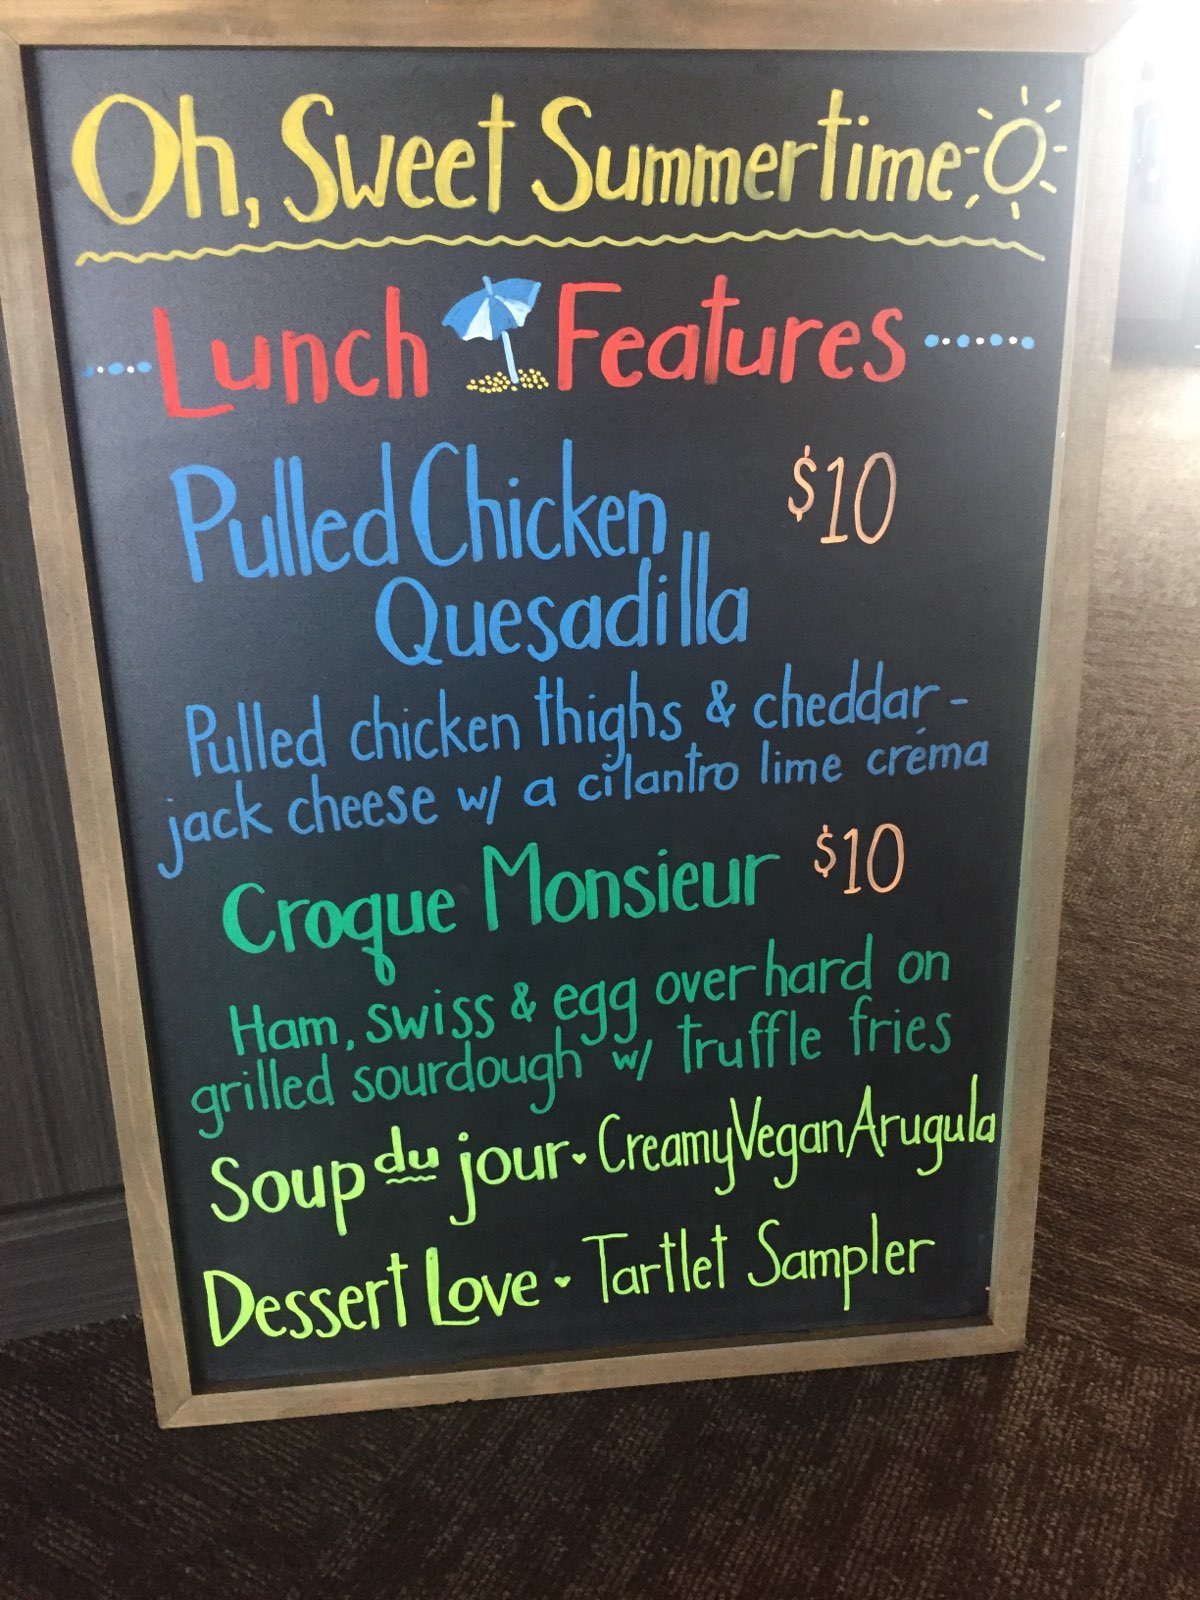 Oh, Sweet Summertime
Lunch Features
Pulled Chicken $10
Quesadilla
Pulled chicken thighs & cheddar -
jack cheese w/ a cilantro lime créma
Croque Monsieur $10
Ham, swiss & egg over hard on
grilled sourdough w/ truffle fries
Soup du jour · Creamy Vegan Arugula
Dessert Love · Tartlet Sampler